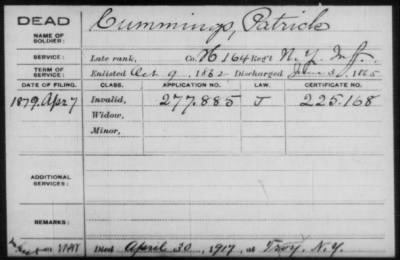 DEAD
NAME OF SOLDIER: Cummings, Patrick
SERVICE: Late rank, Co. H 164 Reg't N.Y. Inf.
TERM OF SERVICE: Enlisted Oct 9, 1862 Discharged 1865
DATE OF FILING. CLASS. APPLICATION NO. LAW. CERTIFICATE NO.
1879. Apr 7 Invalid, 277.885 J 225.168
Widow,
Minor,
ADDITIONAL SERVICES:
REMARKS:
Died April 30, 1917, at Troy, N.Y.